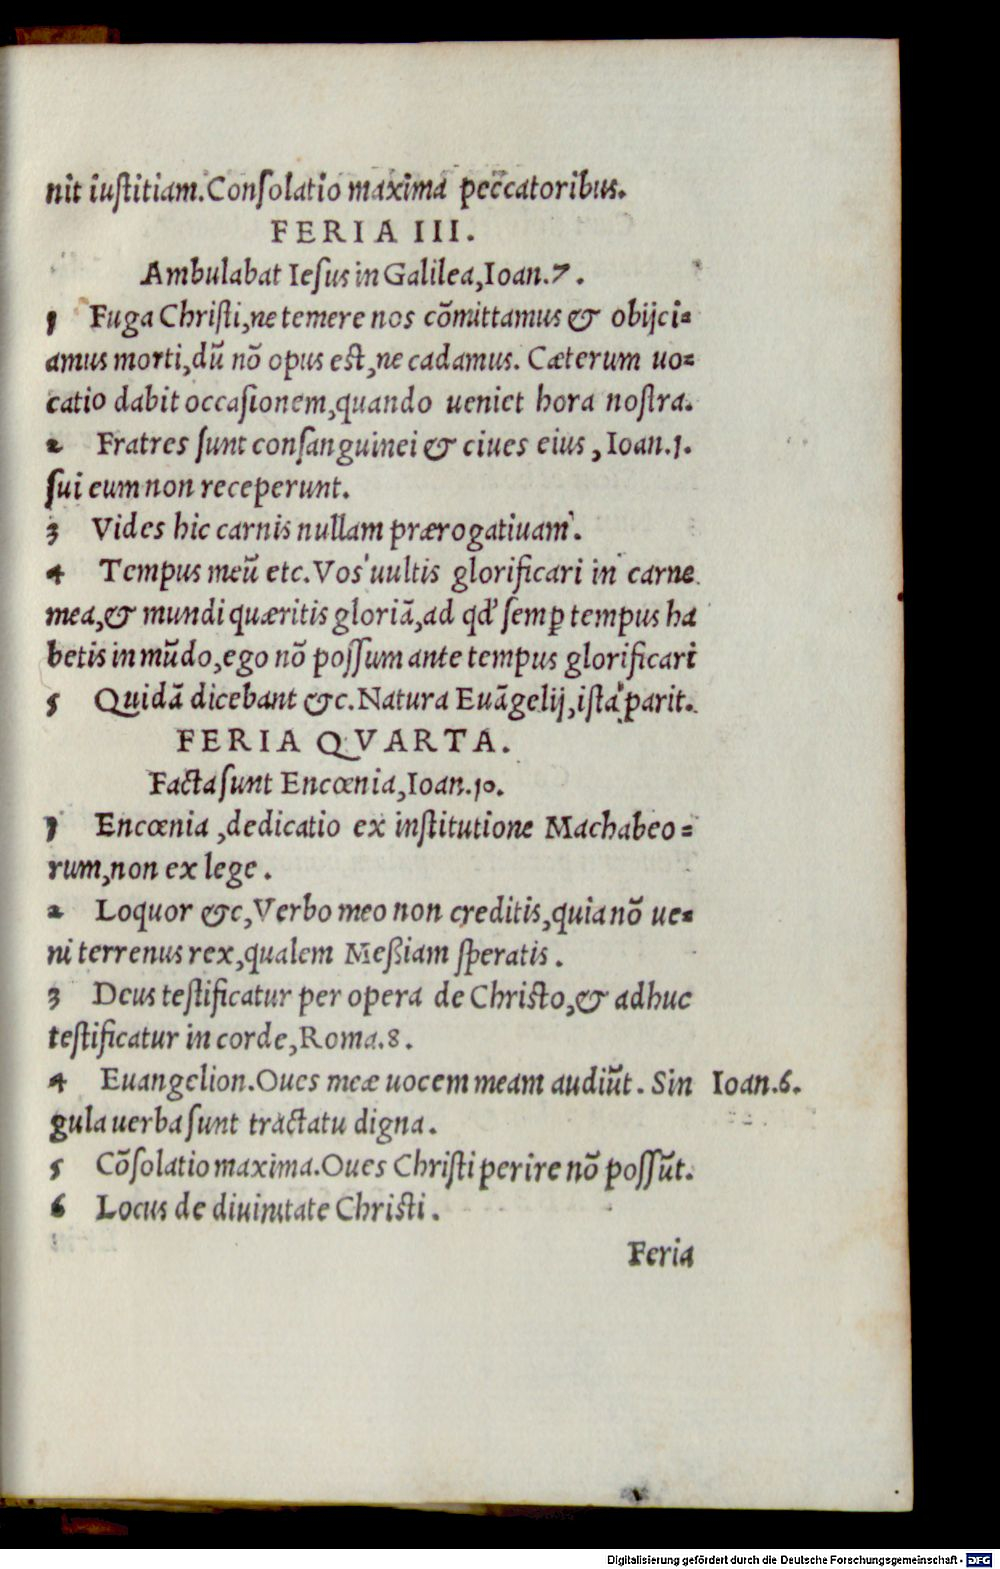 nit iuſtitiam. Conſolatio maxima peccatoribus.
FERIA III.
Ambulabat Ieſus in Galilea, Ioan.7.
1 Fuga Chriſti, ne temere nos cõmittamus & obijci=
amus morti, dũ nõ opus eſt, ne cadamus. Cæterum uo=
catio dabit occaſionem, quando ueniet hora noſtra.
2 Fratres ſunt conſanguinei & ciues eius, Ioan.1.
ſui eum non receperunt.
3 Vides hic carnis nullam prærogatiuam.
4 Tempus meũ etc. Vos uultis glorificari in carne
mea, & mundi quæritis gloriã, ad qd' ſemꝑ tempus ha
betis in mũdo, ego nõ poſſum ante tempus glorificari
5 Quidã dicebant &c. Natura Euãgelij, iſta parit.
FERIA QVARTA.
Facta ſunt Encœnia, Ioan.10.
1 Encœnia, dedicatio ex inſtitutione Machabeo=
rum, non ex lege.
2 Loquor &c, Verbo meo non creditis, quia nõ ue=
ni terrenus rex, qualem Meßiam ſperatis.
3 Deus teſtificatur per opera de Chriſto, & adhuc
teſtificatur in corde, Roma.8.
4 Euangelion. Oues meæ uocem meam audiũt. Sin Ioan.6.
gula uerba ſunt tractatu digna.
5 Cõſolatio maxima. Oues Chriſti perire nõ poſſũt.
6 Locus de diuinitate Chriſti.
Feria
Digitalisierung gefördert durch die Deutsche Forschungsgemeinschaft - DFG